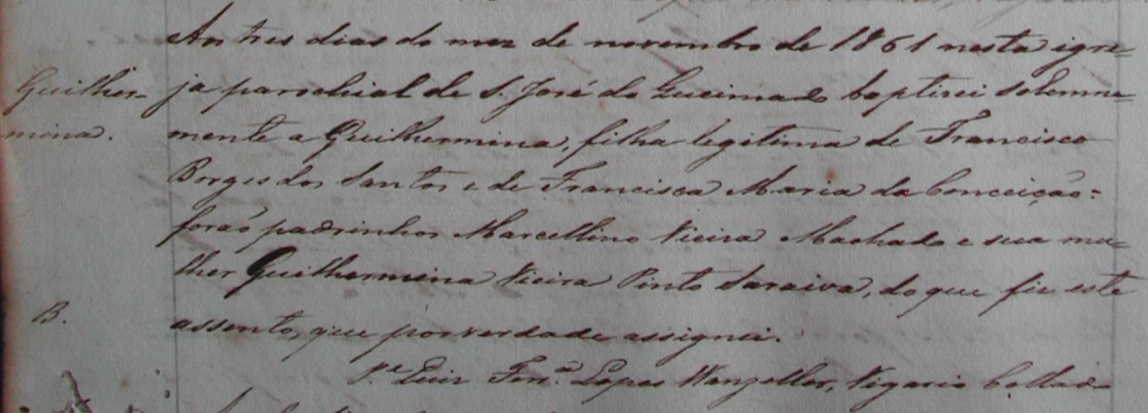 Aos tres dias do mez de novembro de 1861 nesta igre=
Guilher=
ja parochial de S. José do Queimado baptizei solemne=
mina.
mente a Guilhermina, filha legitima de Francisco
Borges dos Santos e de Francisca Maria da Conceição:
foraõ padrinhos Marcellino Vieira Machado e sua mu=
lher Guilhermina Vieira Pinto Saraiva, do que fiz este
B.
assento, que por verdade assignei.
P.e Luiz Lopes Wanzeller, Vigario Collado